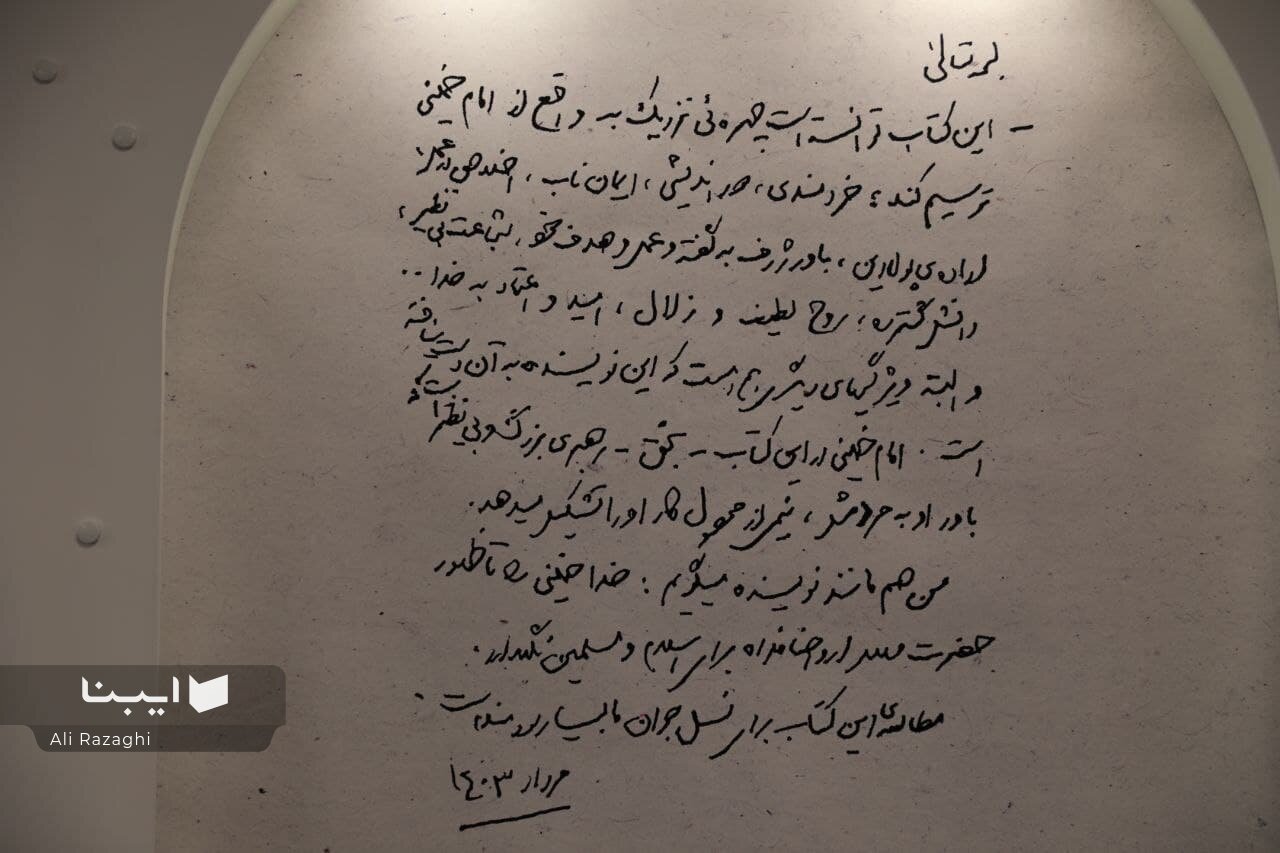 بسمه تعالی
- این کتاب توانسته است چهره‌ئی نزدیک به واقع از امام خمینی
ترسیم کند؛ خردمندی، دوراندیشی، ایمان ناب، اخلاص در عمل،
اراده‌ی پولادین، باور ژرف به گفته و عمل و هدف خود، شجاعت بی‌نظیر،
دانش گسترده، روح لطیف و زلال، امید و اعتماد به خدا..
و البته ویژگیهای دیگری هم هست که این نویسنده به آن دست نیافته
است. امام خمینی در این کتاب - بحق - رهبری بزرگ و بی‌نظیر است که
باور او به مردمش، نیمی از محصول کار او را تشکیل میدهد.
من هم مانند نویسنده میگویم: خدا خمینی را تا ظهور
حضرت مهدی ارواحنا فداه برای اسلام و مسلمین نگهدارد.
مطالعه‌ی این کتاب برای نسل جوان ما بسیار سودمند است.
مرداد ۱۴۰۳
ایبنا
Ali Razaghi